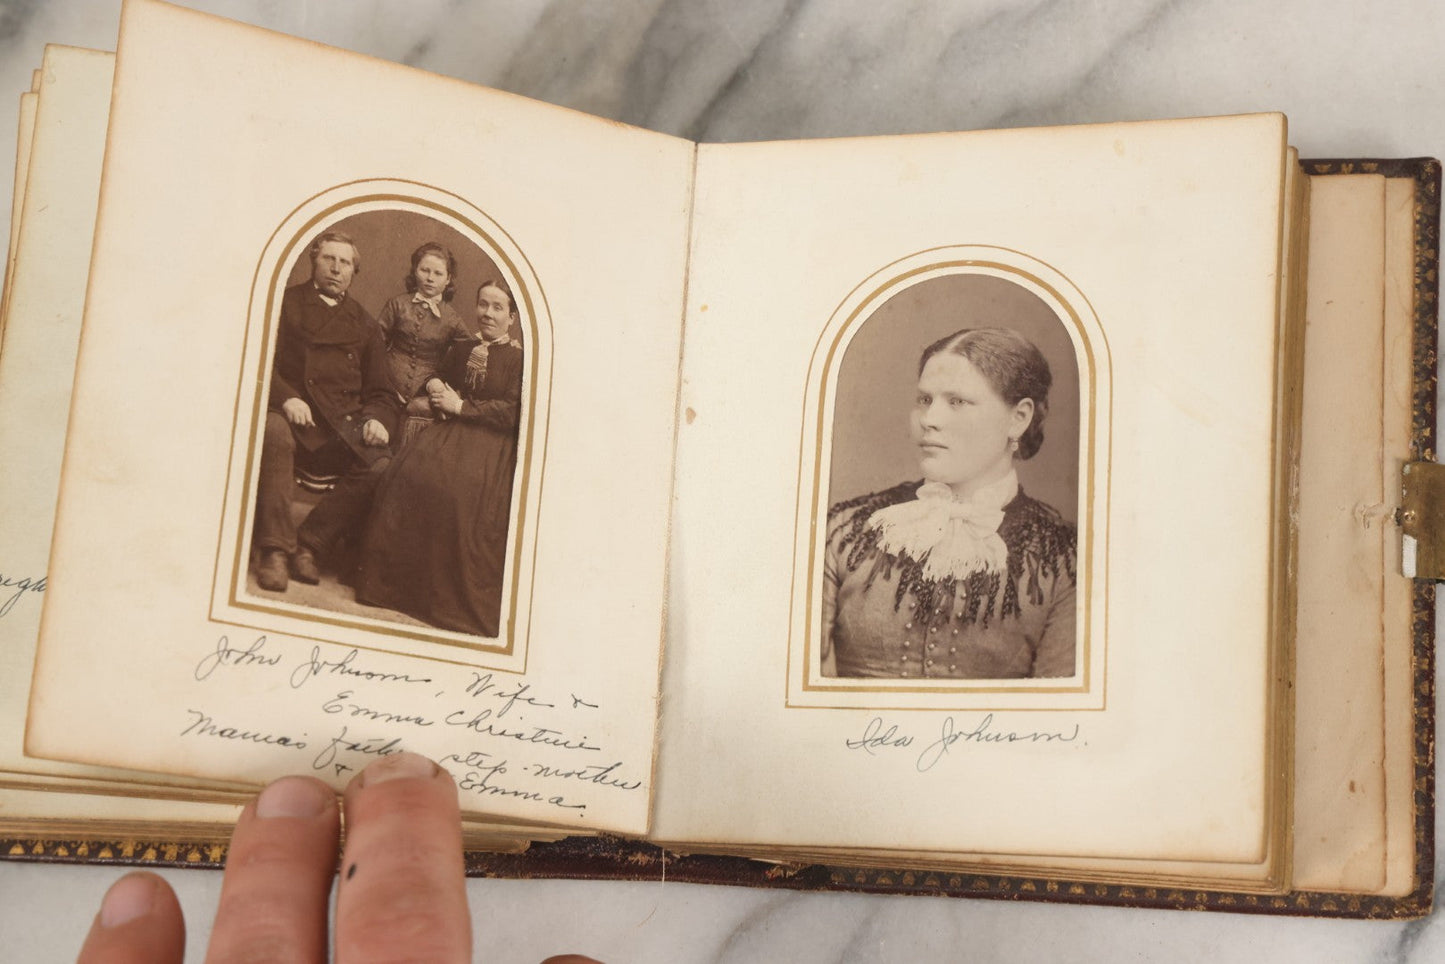 John Johnson, Wife &
Emma Christine
Mama's father step-mother
& Emma.
Ida Johnson.